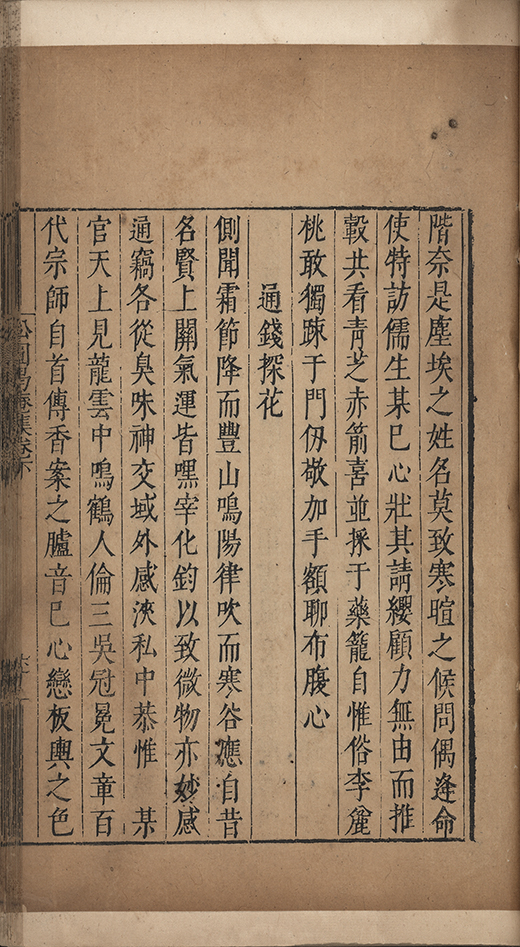 階奈是塵埃之姓名莫致寒暄之候問偶逢命
使特訪儒生某已心壯其請纓顧力無由而推
轂共看青芝赤箭喜並採于藥籠自惟俗李麤
桃敢獨踈于門仭敬加手額聊布腹心
通錢探花
側聞霜節降而豐山鳴陽律吹而寒谷應自昔
名賢上關氣運皆嘿宰化鈞以致微物亦妙感
通竊各從臭味神交域外感浹私中恭惟 某
官天上見龍雲中鳴鶴人倫三吳冠冕文章百
代宗師自首傳香案之臚音已心戀板輿之色
卷下